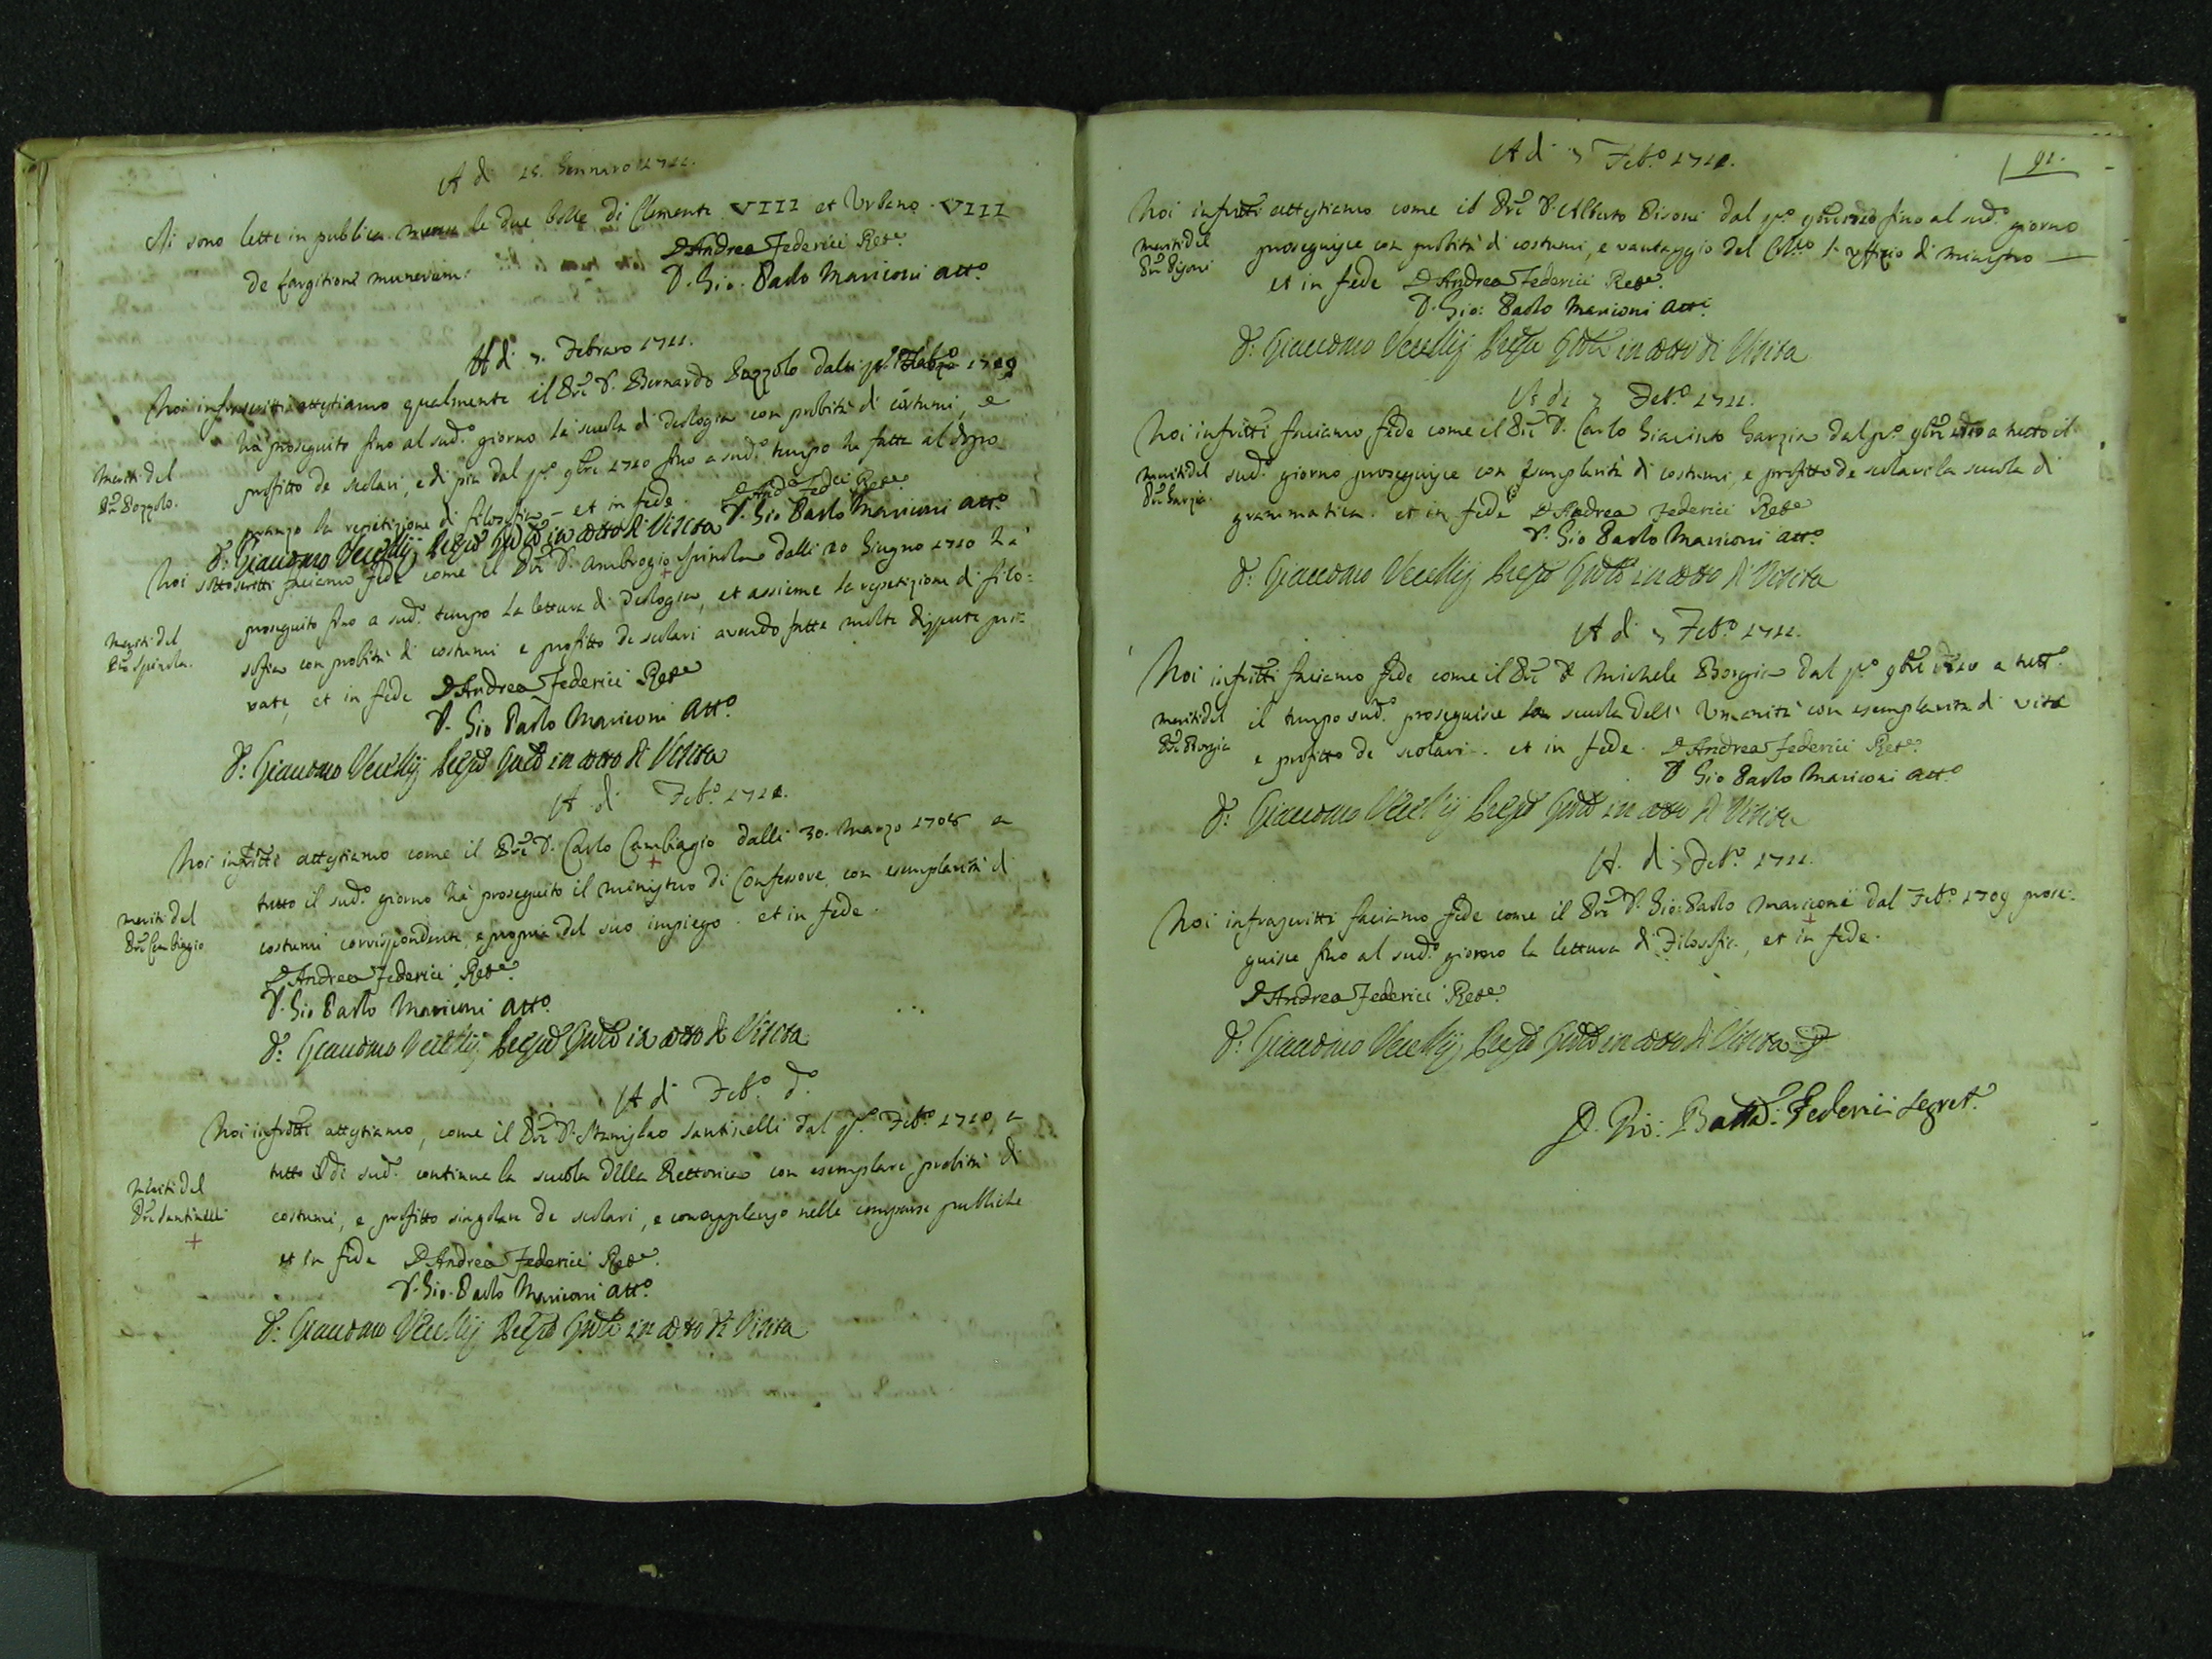 A di 15. Gennaro 1711.
Si sono lette in publica mensa le due bolle di Clemente VIII et Urbano VIII
de largitione munerum.
D Andrea Federici Rete.
D. Gio: Paolo Mariconi atto.
A di 7. Febraro 1711.
Noi infrascritti attestiamo qualmente il Pre D. Bernardo Pozzolo dalli po 1709
hà proseguito fino al sudo giorno la scuola di Teologia con probità di costumi, e
meriti del
Pre Pozzolo.
profitto de scolari, e di più dal po 9bre 1710 fino a sudo tempo hà fatta al dopo
pranzo la repetizione di filosofia - et in fede.
D Andrea Fedeci Rete
D. Gio Paolo Mariconi atto.
D: Giacomo Vecelly in atto di Visita
Noi sottoscritti facciamo fede come il Pre D. Ambrogio Spinola dalli 20 Giugno 1710 hà
proseguito fino a sudo tempo la lettura di Teologia, et assieme la repetizione di filo:
meriti del
Pre Spinola.
sofia con probità di costumi e profitto de scolari avendo fatte molte dispute pri=
vate, et in fede D Andrea Federici Rete
D. Gio Paolo Mariconi Atto.
D: Giacomo Vecelly in atto di Visita
A di Febo. 1711.
Noi infritti attestiamo come il Pre D. Carlo Cambiagio dalli 30. Marzo 1708 a
tutto il sudo giorno hà proseguito il ministero di Confessore con esemplarità di
meriti del
Pre Cambiagio
costumi corrispondente, e propria del suo impiego. et in fede.
D Andrea Federici Rete.
D. Gio Paolo Mariconi atto.
D: Giacomo Vecelly in atto di Visita
A di Febo. do.
Noi infritti attestiamo, come il Pre D. Stanislao Santinelli dal po. Febo. 1710, a
tutto il di sudo. continua la scuola della Rettorica con esemplare probità di
meriti del
Pre Santinelli
costumi, e profitto singolare de scolari, e con applauso nelle comparse publiche
et in fede D Andrea Federici Rete.
D. Gio. Paolo Mariconi atto.
D: Giacomo Vecelly in atto di Visita
91.
A di 7 Febo. 1711.
Noi infritti attestiamo come il Pre D. Alberto Pisoni dal po. 9bre 1710 fino al sudo. giorno
meriti del
Pre Pisoni
proseguisce con probità di costumi, e vantaggio del l'uffizio di ministro
et in fede D Andrea Federici Rete.
D. Gio: Paolo Mariconi atto.
D: Giacomo Vecelly in atto di Visita
A di 7 Febo. 1711.
Noi infritti facciamo fede come il Pre D. Carlo Giacinto Garzia dal po. 9bre 1710 a tutto il
meriti del
Pre Garzia.
sudo. giorno proseguisce con esemplarità di costumi, e profitto de scolari la scuola di
grammatica. et in fede D Andrea Federici Rete
D. Gio Paolo Mariconi atto.
D: Giacomo Vecelly in atto di Visita
A di 7 Febo. 1711.
Noi infritti facciamo fede come il Pre D Michele Borgia dal po. 9bre 1710 a tutto
meriti del
Pre Borgia
il tempo sudo. proseguisce la scuola dell' Umanità con esemplarità di vita
e profitto de scolari. et in fede. D Andrea Federici Rete.
D Gio Paolo Mariconi atto.
D: Giacomo Vecelly in atto di Visita
A. di 7 Febo. 1711.
Noi infrascritti facciamo fede come il Pre D. Gio: Paolo Mariconi dal Febo. 1709 prose:
guisce fino al sudo. giorno la lettura di Filosofia, et in fede.
D Andrea Federici Rete.
D: Giacomo Vecelly in atto di Visita
D. Gio: Batta. Federici Segret.